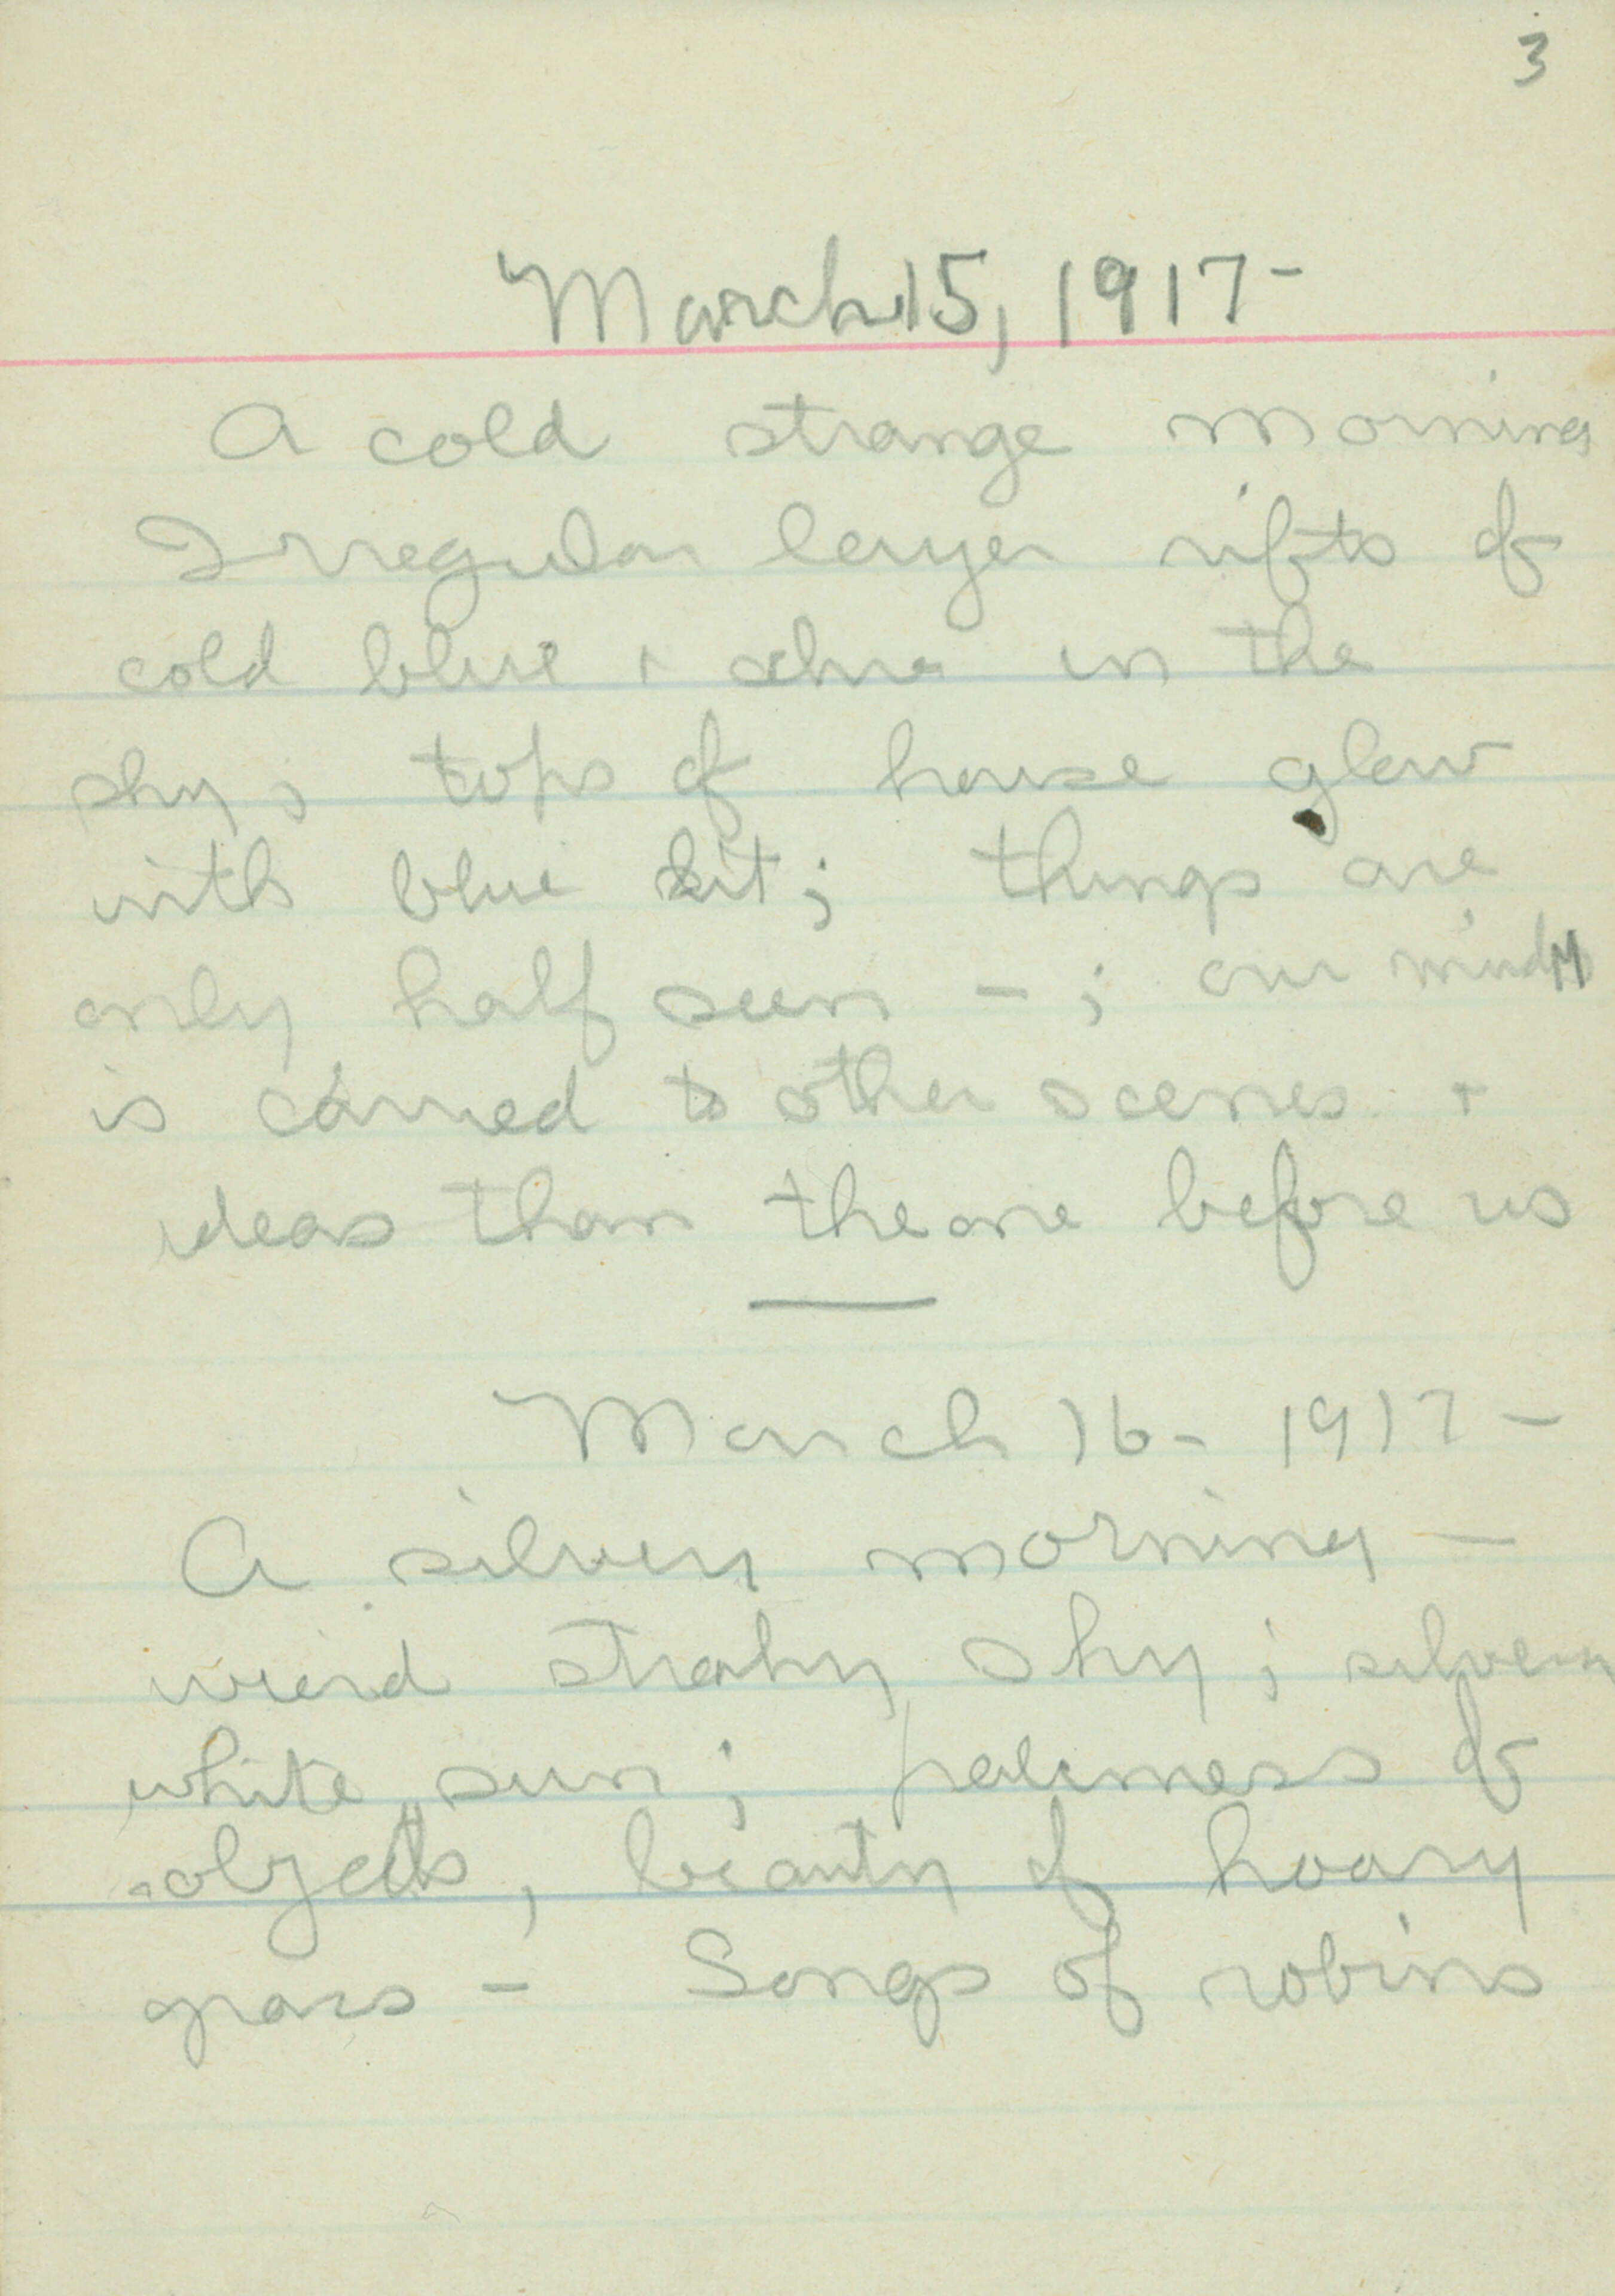 3
March 15, 1917 -
A cold strange morning
Irregular layer rifts of
cold blue + in the
sky; tops of house glow
with blue lit; things are
only half seen - ; our mind
is carried to other scenes +
ideas than the one before us
March 16 - 1917 -
A silvery morning -
weird streaky sky; silvery
white sun; paleness of
objects, beauty of hoary
grass - Songs of robins